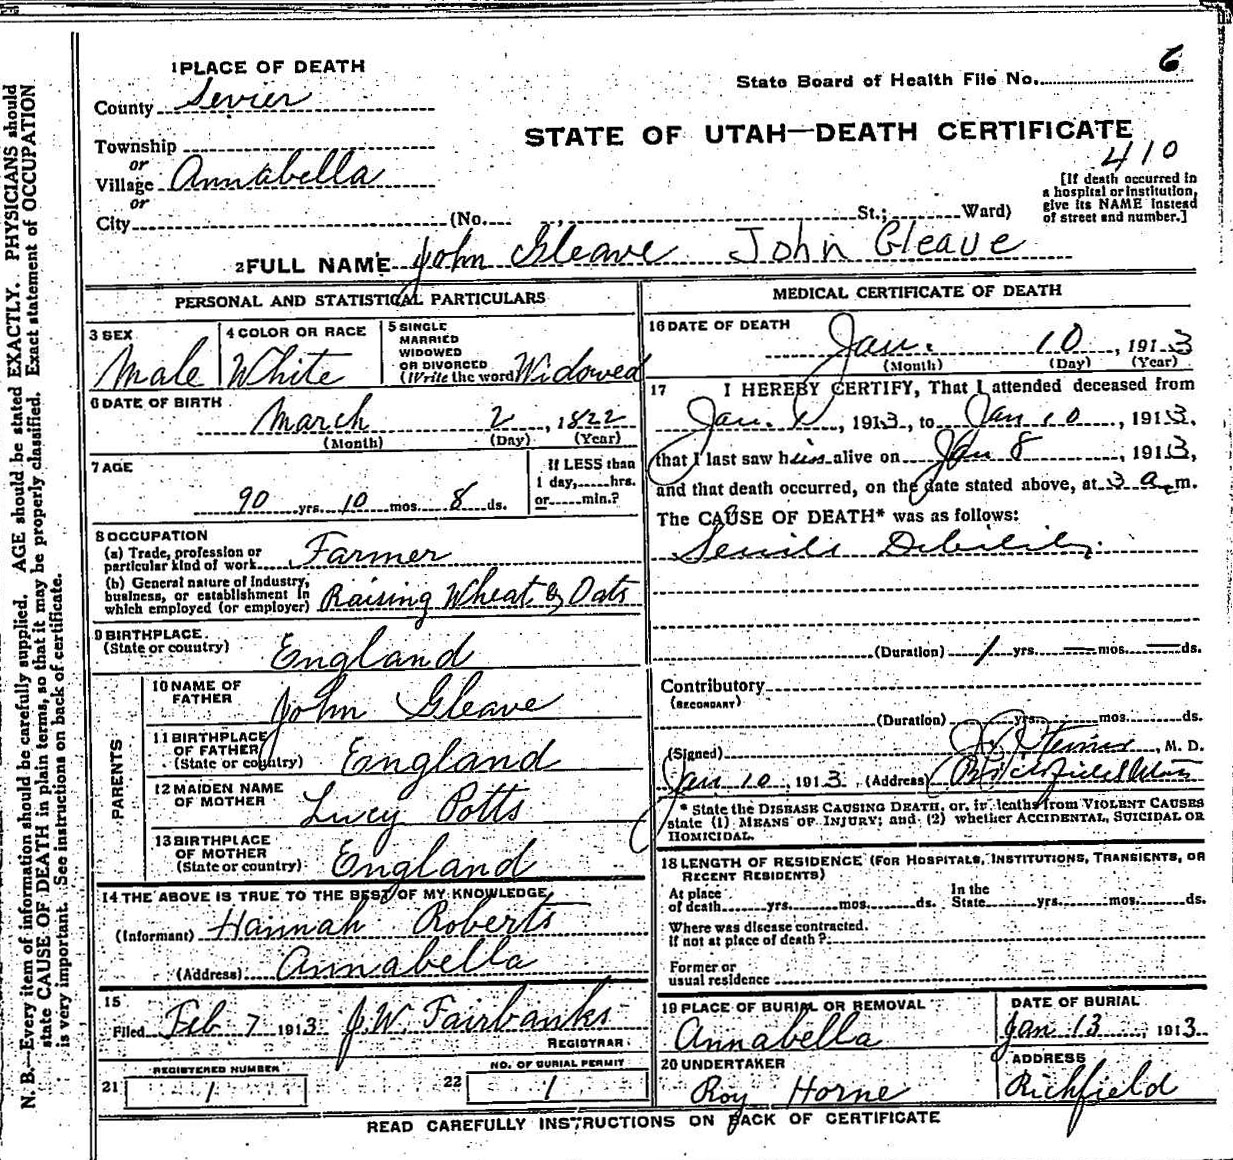 1 PLACE OF DEATH
County Sevier
State Board of Health File No. 6
STATE OF UTAH—DEATH CERTIFICATE
410
Township
or
Village Annabella
or
City (No. , St.; Ward)
[If death occurred in
a hospital or institution,
give its NAME instead
of street and number.]
2 FULL NAME John Gleave John Gleave
PERSONAL AND STATISTICAL PARTICULARS
3 SEX
Male
4 COLOR OR RACE
White
5 SINGLE
MARRIED
WIDOWED
OR DIVORCED
(Write the word) Widowed
6 DATE OF BIRTH
March 2, 1822
(Month) (Day) (Year)
7 AGE
90 yrs. 10 mos. 8 ds.
If LESS than
1 day, hrs.
or min.?
8 OCCUPATION
(a) Trade, profession or
particular kind of work Farmer
(b) General nature of industry,
business, or establishment in
which employed (or employer) Raising Wheat & Oats
9 BIRTHPLACE
(State or country) England
PARENTS
10 NAME OF
FATHER John Gleave
11 BIRTHPLACE
OF FATHER
(State or country) England
12 MAIDEN NAME
OF MOTHER Lucy Potts
13 BIRTHPLACE
OF MOTHER
(State or country) England
14 THE ABOVE IS TRUE TO THE BEST OF MY KNOWLEDGE
(Informant) Hannah Roberts
(Address) Annabella
15
Filed Feb 7 1913 J.W. Fairbanks
REGISTRAR
21 REGISTERED NUMBER
1
22 NO. OF BURIAL PERMIT
1
MEDICAL CERTIFICATE OF DEATH
16 DATE OF DEATH
Jan. 10, 1913
(Month) (Day) (Year)
17 I HEREBY CERTIFY, That I attended deceased from
Jan. , 1913, to Jan 10, 1913,
that I last saw him alive on Jan 8, 1913,
and that death occurred, on the date stated above, at 3 a. m.
The CAUSE OF DEATH* was as follows:
Senile Debility
(Duration) 1 yrs. — mos. — ds.
Contributory
(SECONDARY)
(Duration) yrs. mos. ds.
(Signed) , M. D.
Jan 10, 1913. (Address) Richfield Utah
* State the DISEASE CAUSING DEATH, or, in deaths from VIOLENT CAUSES
state (1) MEANS OF INJURY; and (2) whether ACCIDENTAL, SUICIDAL OR
HOMICIDAL.
18 LENGTH OF RESIDENCE (FOR HOSPITALS, INSTITUTIONS, TRANSIENTS, OR
RECENT RESIDENTS)
At place
of death yrs. mos. ds.
In the
State yrs. mos. ds.
Where was disease contracted,
if not at place of death?
Former or
usual residence
19 PLACE OF BURIAL OR REMOVAL
Annabella
DATE OF BURIAL
Jan 13, 1913
20 UNDERTAKER
Roy Horne
ADDRESS
Richfield
READ CAREFULLY INSTRUCTIONS ON BACK OF CERTIFICATE
N. B.—Every item of information should be carefully supplied. AGE should be stated EXACTLY. PHYSICIANS should
state CAUSE OF DEATH in plain terms, so that it may be properly classified. Exact statement of OCCUPATION
is very important. See instructions on back of certificate.